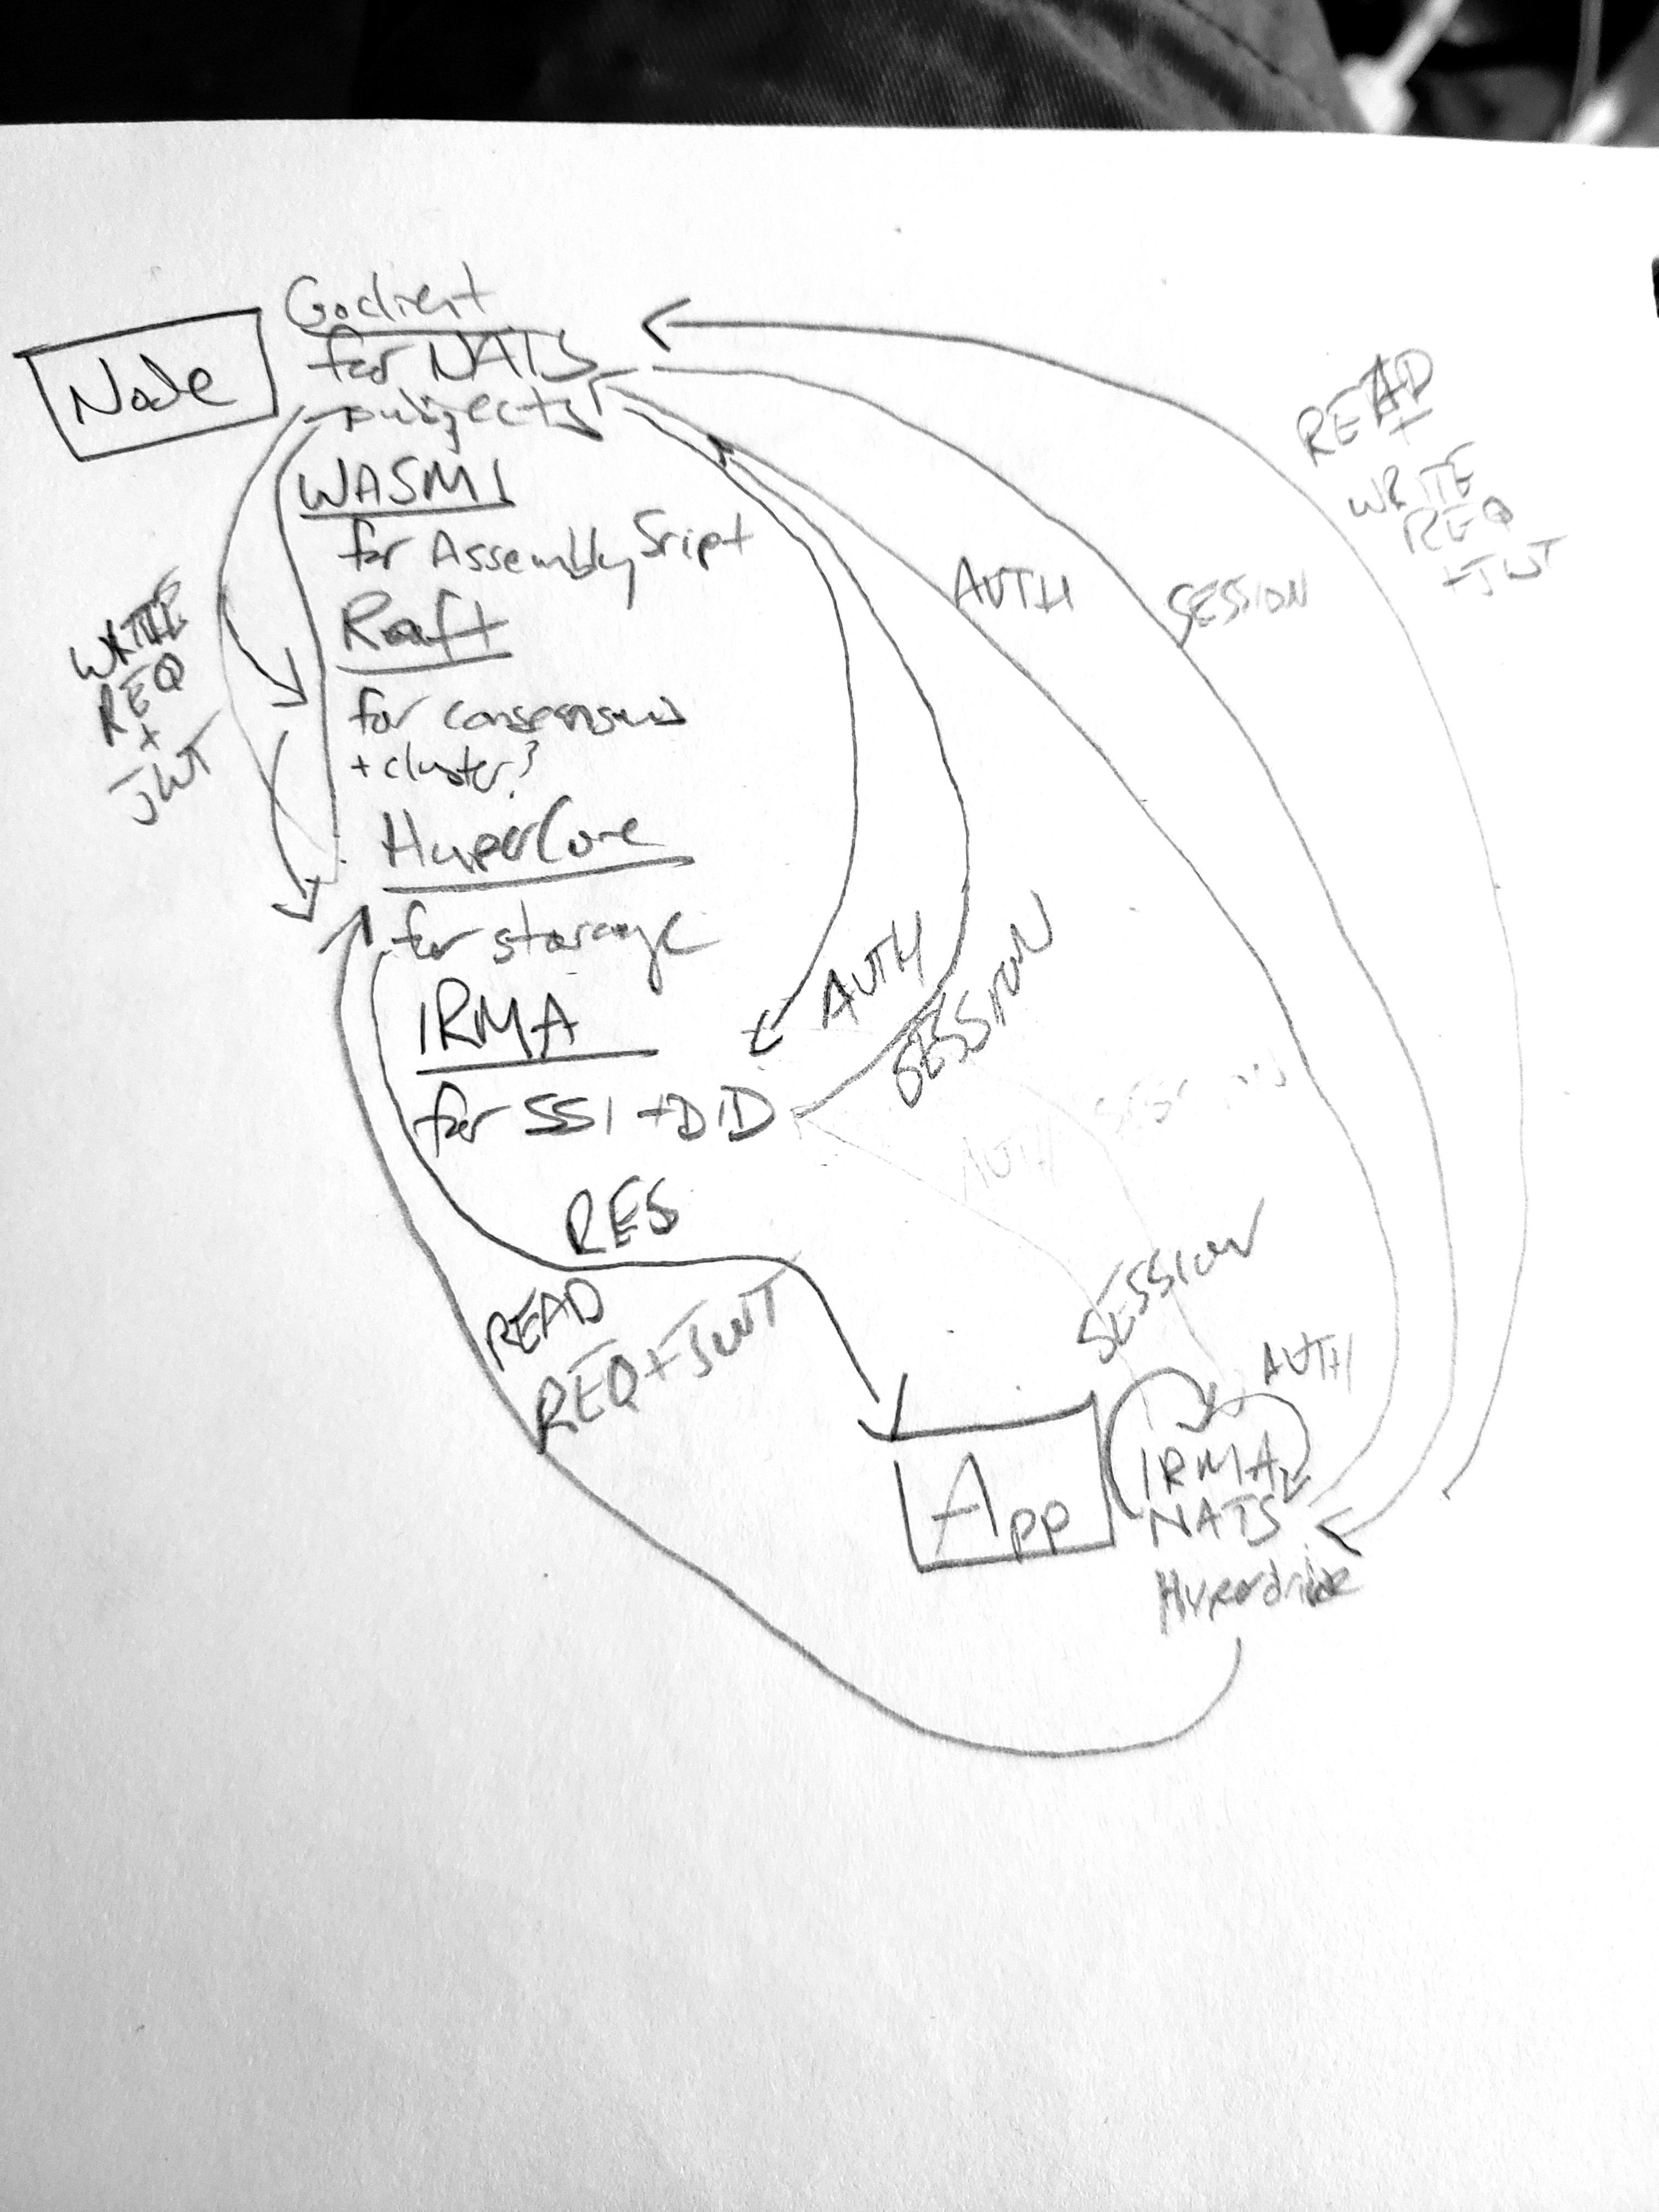 Node
Go client
for NATS
subjects
WASM
for AssemblySript
Raft
for consensus
+ cluster?
HyperCore
for storage
IRMA
for SSI + DID
WRITE
REQ
+
JWT
AUTH
SESSION
AUTH
SESSION
READ
+
WRITE
REQ
+JWT
AUTH
SESSION
RES
READ
REQ + JWT
SESSION
AUTH
App
IRMA
NATS
Hyperdrive